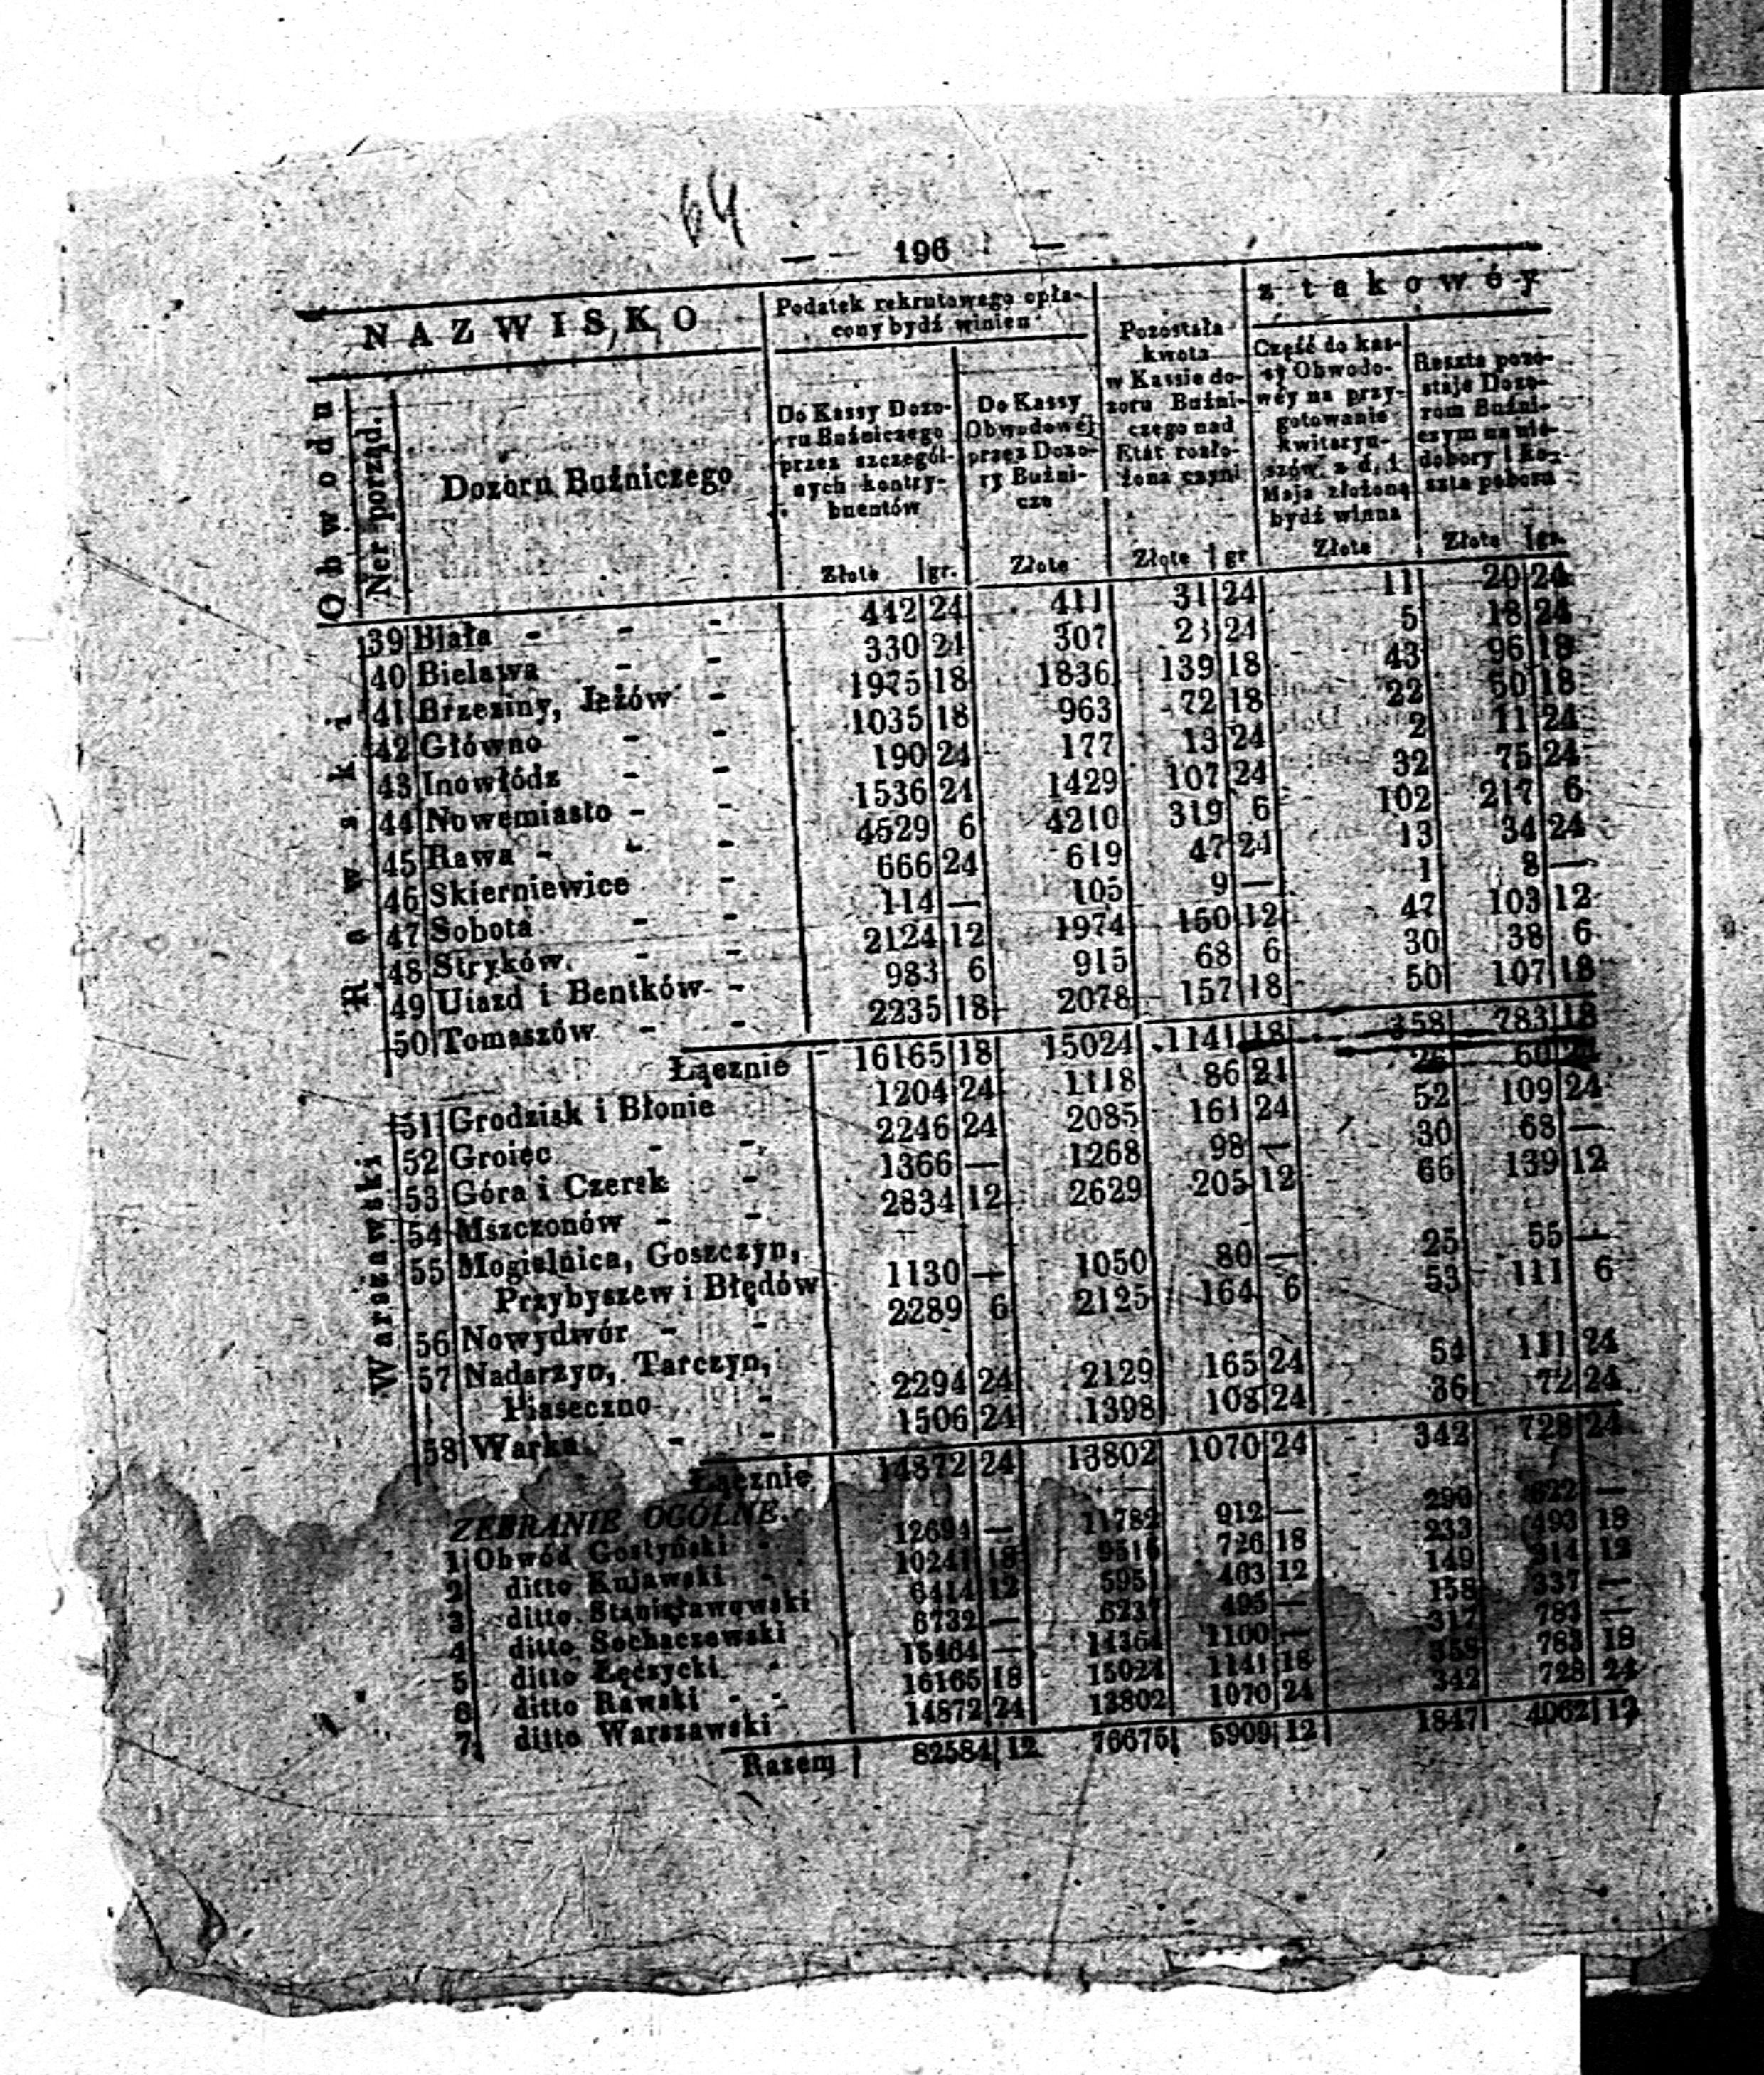 64
— 196 —
NAZWISKO
Podatek rekrutowego opła-
cony bydź winien
z takowéy
Obwodu
Ner porząd.
Dozoru Buźniczego
Do Kassy Dozo-
ru Buźniczego
przez szczegól-
nych kontry-
buentów
Do Kassy
Obwodowéj
przez Dozo-
ry Buźni-
cze
Pozostała
kwota
w Kassie do-
zoru Buźni-
czego nad
Etat rozło-
żona czyni
Część do kas-
sy Obwodo-
wéy na przy-
gotowanie
kwitaryu-
szów z d. 1
Maja złożoną
bydź winna
Reszta pozo-
staje Dozo-
rom Buźni-
czym na nie-
dobory i ko-
szta poboru
Złote gr. Złote Złote gr Złote Złote gr.
Rawski
39 Biała - - - 442 24 411 31 24 11 20 24
40 Bielawa - - 330 24 307 23 24 5 18 24
41 Brzeziny, Jeżów - 1975 18 1836 139 18 43 96 18
42 Główno - - 1035 18 963 72 18 22 50 18
43 Inowłódz - - 190 24 177 13 24 2 11 24
44 Nowemiasto - - 1536 24 1429 107 24 32 75 24
45 Rawa - - - 4529 6 4210 319 6 102 217 6
46 Skierniewice - 666 24 619 47 24 13 34 24
47 Sobota - - 114 — 105 9 — 1 8 —
48 Stryków - - 2124 12 1974 150 12 47 103 12
49 Uiazd i Bentków - 983 6 915 68 6 30 38 6
50 Tomaszów - - 2235 18 2078 157 18 50 107 18
Łącznie - 16165 18 15024 1141 18 358 783 18
Warszawski
51 Grodzisk i Błonie 1204 24 1118 86 24 26 60 24
52 Groiec - - 2246 24 2085 161 24 52 109 24
53 Góra i Czersk - 1366 — 1268 98 — 30 68 —
54 Mszczonów - - 2834 12 2629 205 12 66 139 12
55 Mogielnica, Goszczyn,
Przybyszew i Błędów 1130 — 1050 80 — 25 55 —
56 Nowydwór - - 2289 6 2125 164 6 53 111 6
57 Nadarzyn, Tarczyn,
Piaseczno - 2294 24 2129 165 24 54 111 24
58 Warka - - 1506 24 1398 108 24 36 72 24
Łącznie 14872 24 13802 1070 24 342 728 24
ZEBRANIE OGÓLNE.
1 Obwód Gostyński - 12694 — 11782 912 — 290 622 —
2 ditto Kujawski - 10241 18 9515 726 18 233 493 18
3 ditto Stanisławowski 6414 12 5951 463 12 149 314 12
4 ditto Sochaczewski 6732 — 6237 495 — 158 337 —
5 ditto Łęczycki - 15464 — 14364 1100 — 317 783 —
6 ditto Rawski - - 16165 18 15024 1141 18 358 783 18
7 ditto Warszawski 14872 24 13802 1070 24 342 728 24
Razem 82584 12 76675 5909 12 1847 4062 12